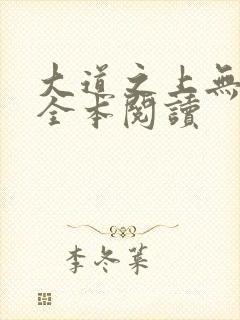 大道之上無
全本閱讀
李冬菜